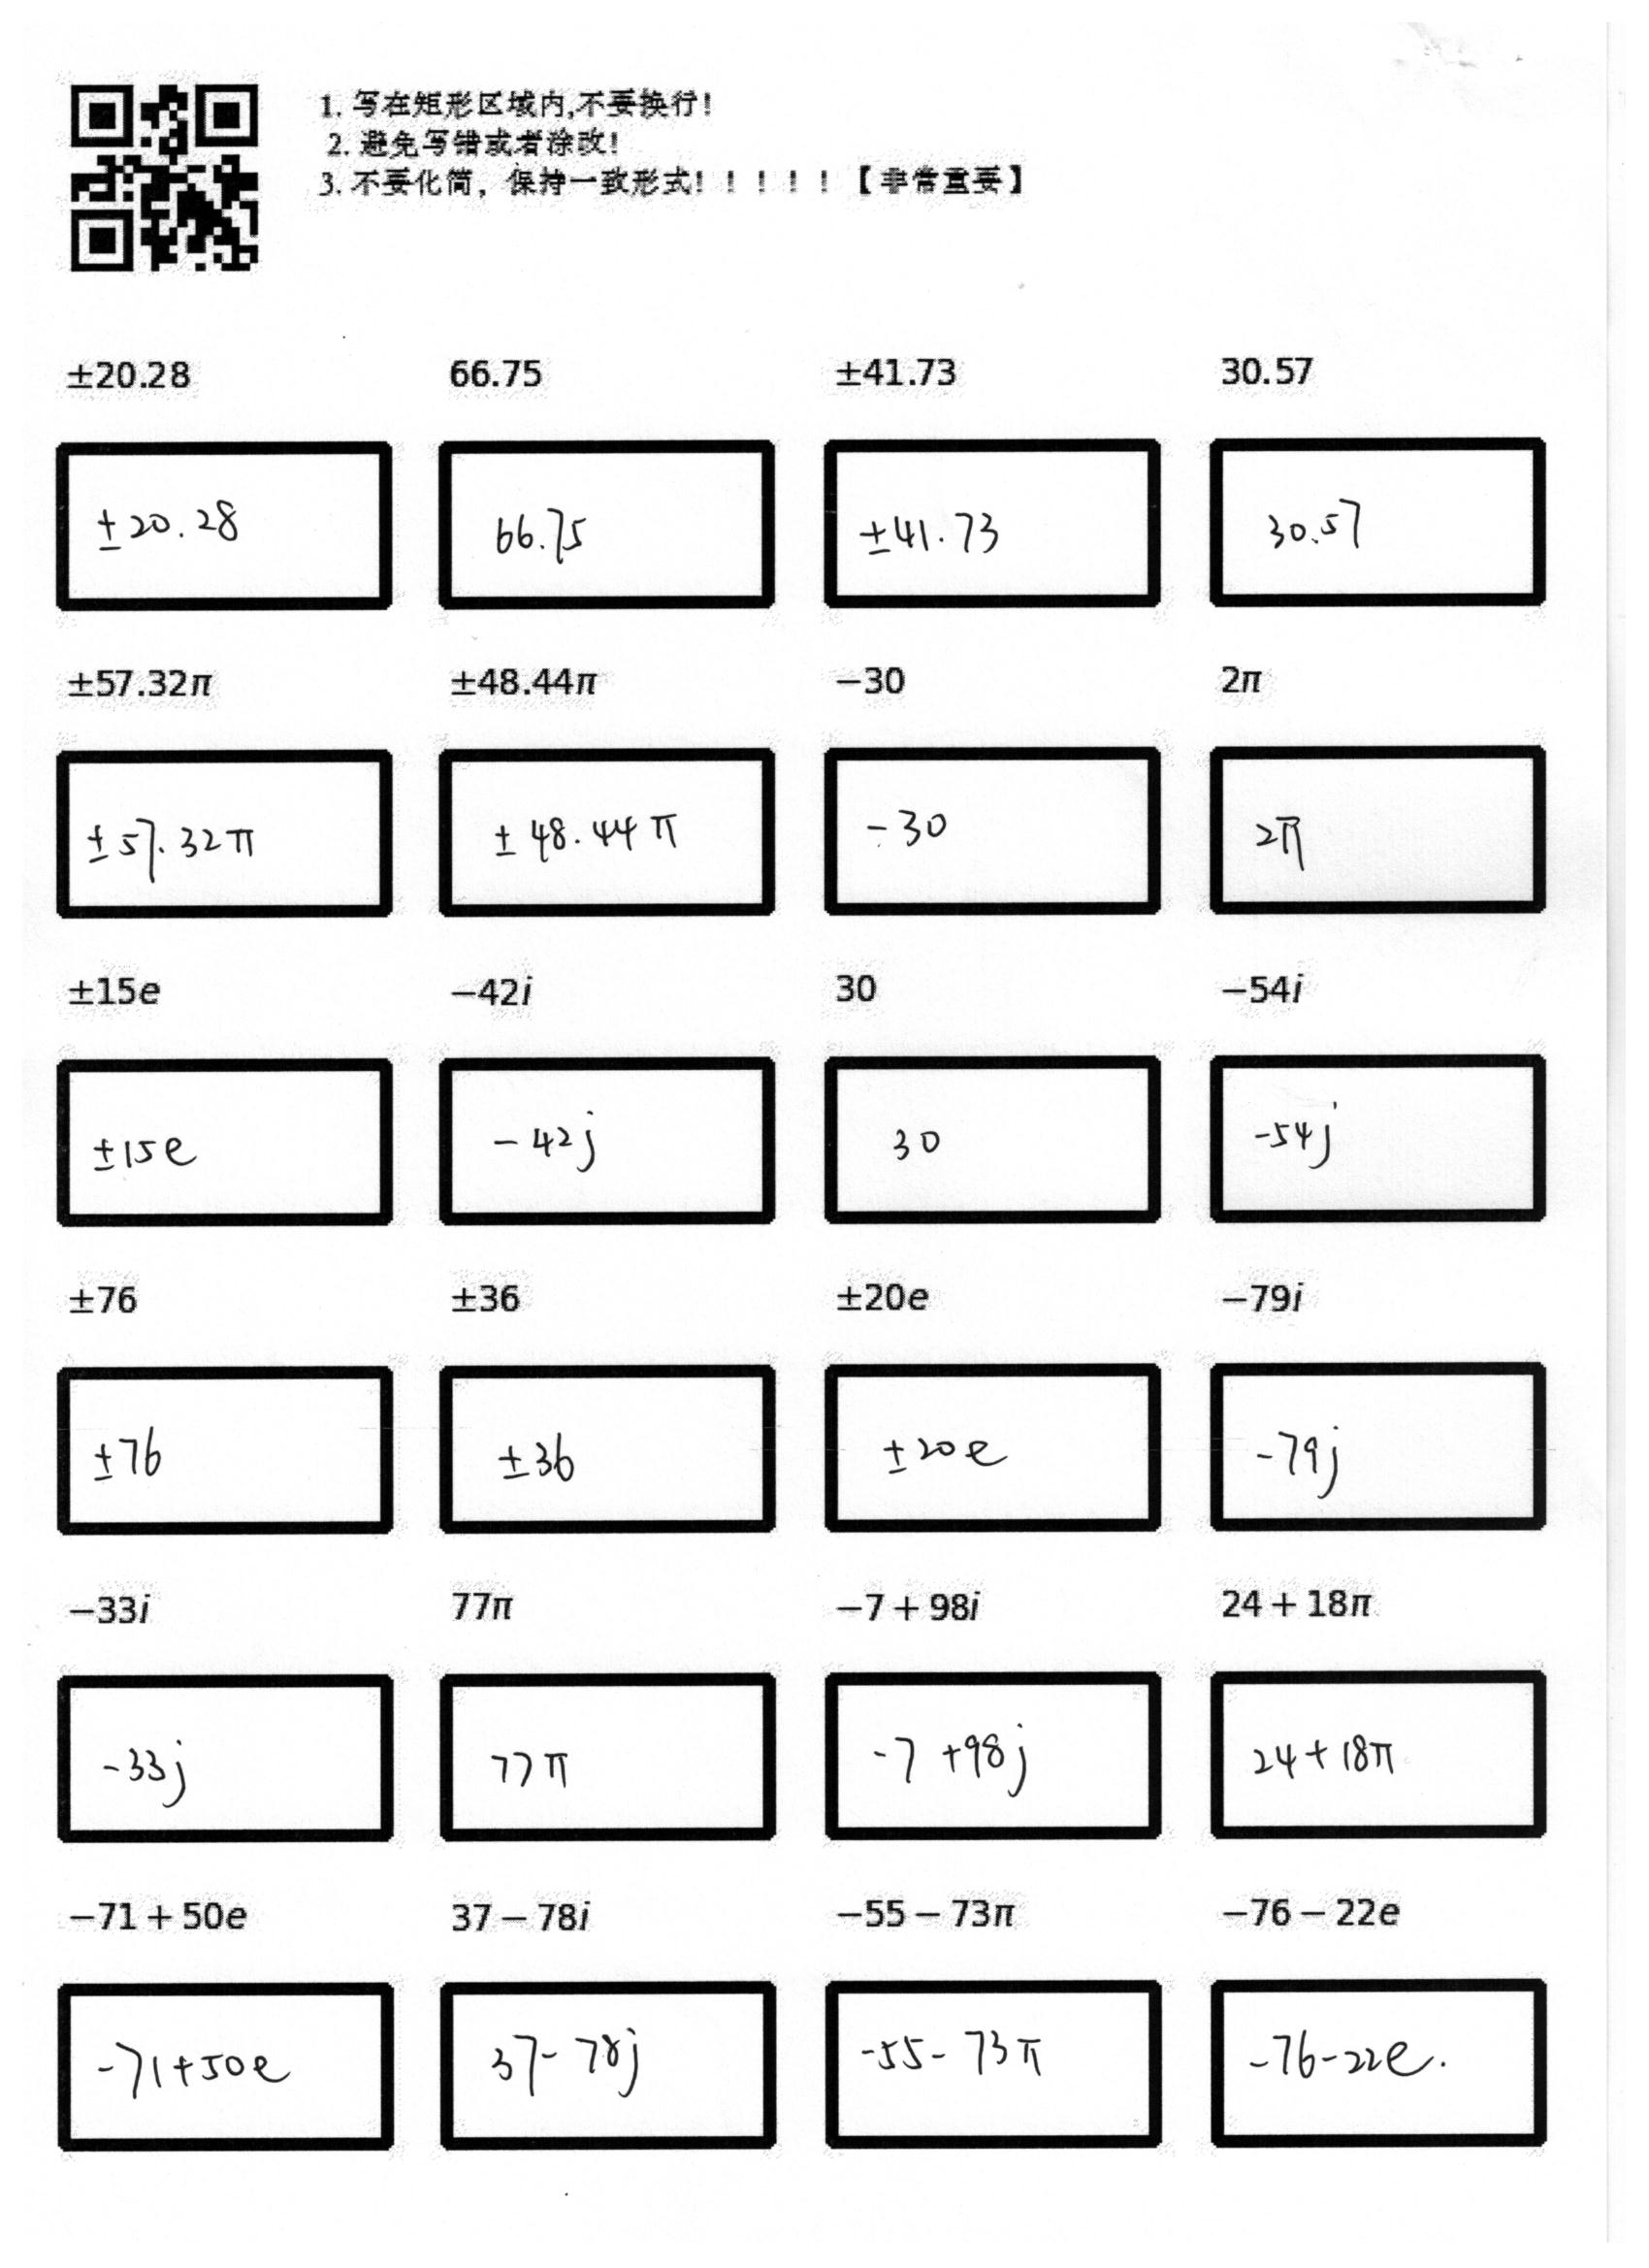 1. 写在矩形区域内,不要换行!
2. 避免写错或者涂改!
3. 不要化简，保持一致形式! ! ! ! !【非常重要】
±20.28 66.75 ±41.73 30.57
±20.28 66.75 ±41.73 30.57
±57.32π ±48.44π −30 2π
±57.32π ±48.44π -30 2π
±15e −42i 30 −54i
±15e -42j 30 -54j
±76 ±36 ±20e −79i
±76 ±36 ±20e -79j
−33i 77π −7 + 98i 24 + 18π
-33j 77π -7 +98j 24+18π
−71 + 50e 37 − 78i −55 − 73π −76 − 22e
-71+50e 37-78j -55-73π -76-22e.